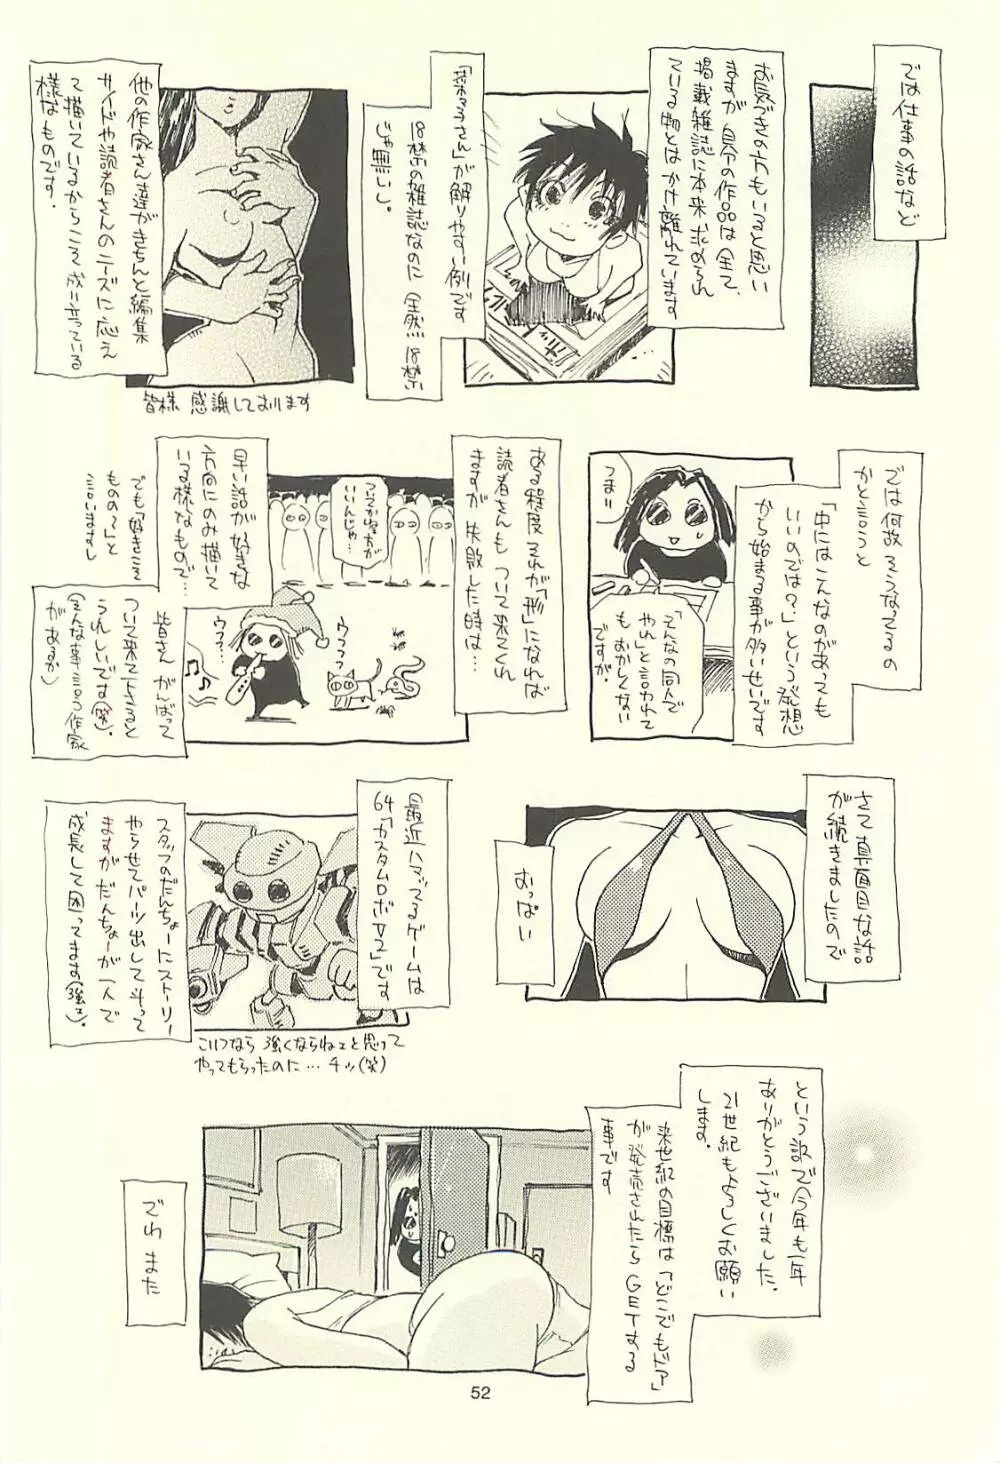 では仕事の話など
お気づきの方もいると思い
ますが 自分の作品は全て、
掲載雑誌に本来求められ
ている物とは かけ離れています
「菜々子さん」が解りやすい例です
18禁の雑誌なのに 全然 18禁
じゃ無いし。
他の作家さん達がきちんと編集
サイドや読者さんのニーズに応え
て描いているからこそ 成り立っている
様なものです.
皆様 感謝しております
では何故 そうなってるの
かと言うと
「中にはこんなのがあっても
いいのでは?」という発想
から始まる事が多いせいです
つまり
「そんなの同人で
やれ」と言われて
も おかしくない
ですが.
ある程度 それが「形」になれば
読者さんも ついて来てくれ
ますが 失敗した時は…
ついてか 方が
いいんじゃ…
早い話が好きな
方向にのみ描いて
いる様なもので…
ウフフフ
ウフフ…
でも「好きこそ
ものの〜」と
言いますし
皆さん がんばって
ついて来て下さると
うれしいです(笑).
(そんな事言う作家
があるか)
さて 真面目な話
が続きましたので
おっぱい
最近ハマッてるゲームは
64「カスタムロボV2」です
スタッフのだんちょーにストーリー
やらせてパーツ出してもらって
ますが だんちょーが一人で
成長して困ってます(強え).
こいつなら 強くならねェと思って
やってもらったのに… チッ(笑)
という訳で今年も一年
ありがとうございました.
21世紀もよろしくお願い
します.
来世紀の目標は「どこでもドア」
が発売されたら GETする
事です
でわ また
52